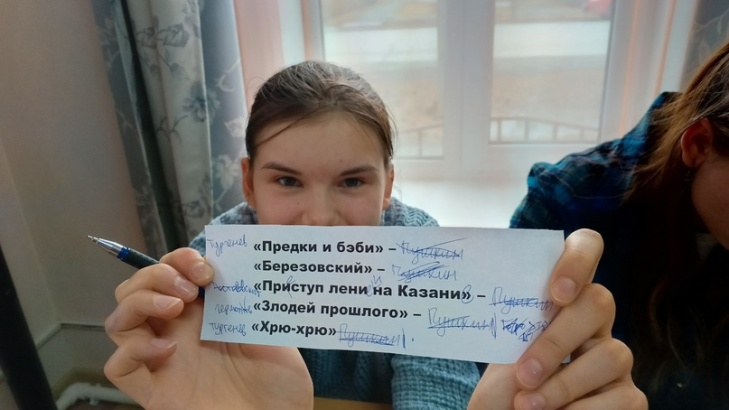 Тургенев «Предки и бэби» – Пушкин
«Березовский» – Пушкин
«Приступ лени на Казани» – Пушкин
«Злодей прошлого» – Пушкин
Тургенев «Хрю-хрю» Пушкин.